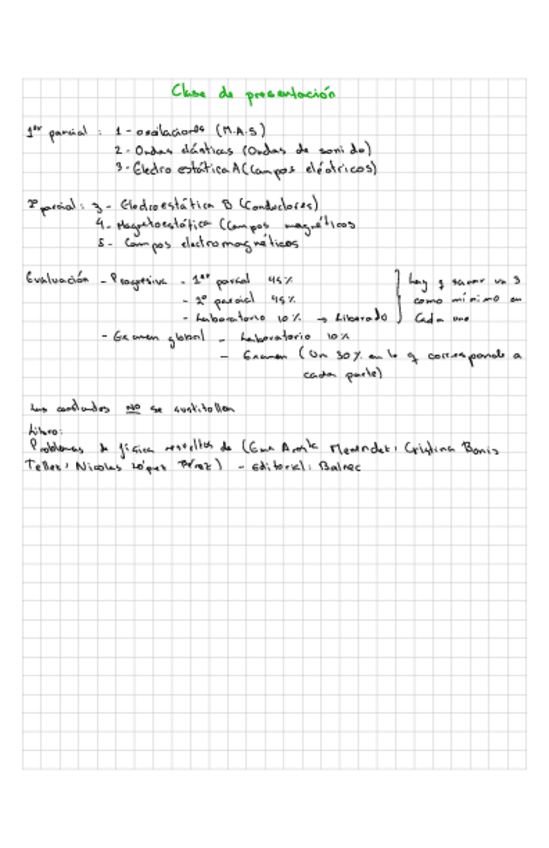 Clase de presentación
1er parcial : 1 - oscilaciones (M.A.S)
2 - Ondas elásticas (Ondas de sonido)
3 - Electro estática A (Campos eléctricos)
2º parcial : 3 - Electroestática B (Conductores)
4 - Magnetoestática (Campos magnéticos
5 - Campos electromagnéticos
Evaluación - Progresiva - 1er parcial 45% hay q sacar un 3
- 2º parcial 45% como mínimo en
- Laboratorio 10% → Liberado cada uno
- Examen global - Laboratorio 10%
- Examen (Un 30% en lo q corresponde a
cada parte)
Las constantes NO se sustituyen
Libro:
Problemas de física resueltos de ( Menéndez, Cristina Bonis
Tellez, Nicolas López Pérez) - Editorial: Balnec